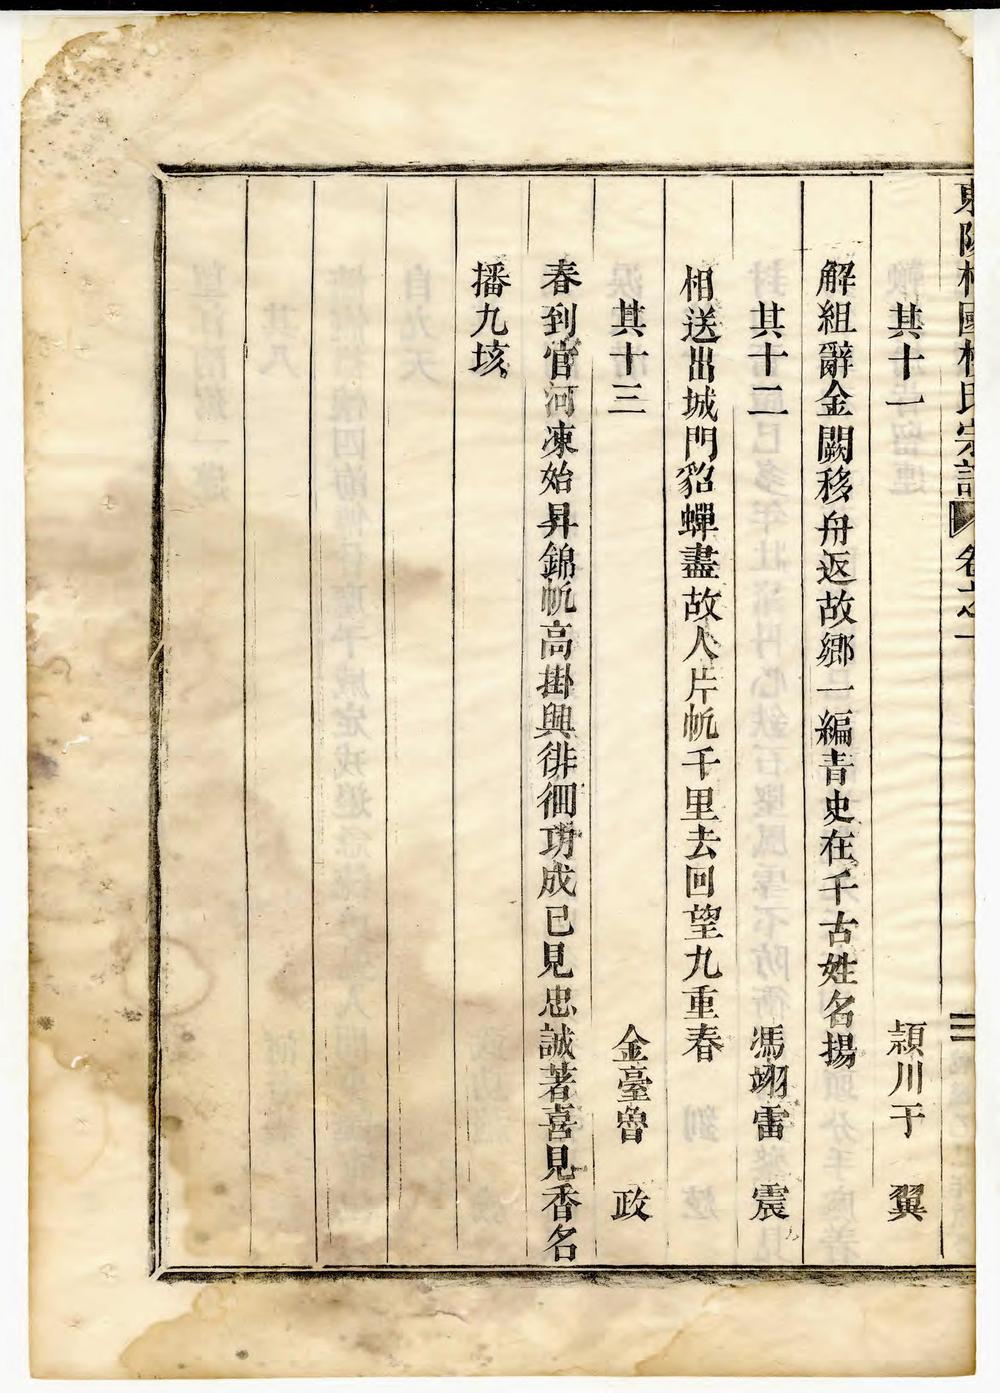 東陽杜國杜氏宗譜 卷之一 三
其十一 潁川于 翼
解組辭金闕移舟返故鄉一編青史在千古姓名揚
其十二 馮翊雷 震
相送出城門貂蟬盡故人片帆千里去回望九重春
其十三 金臺魯 政
春到官河凍始昇錦帆高掛興徘徊功成已見忠誠著喜見香名
播九垓